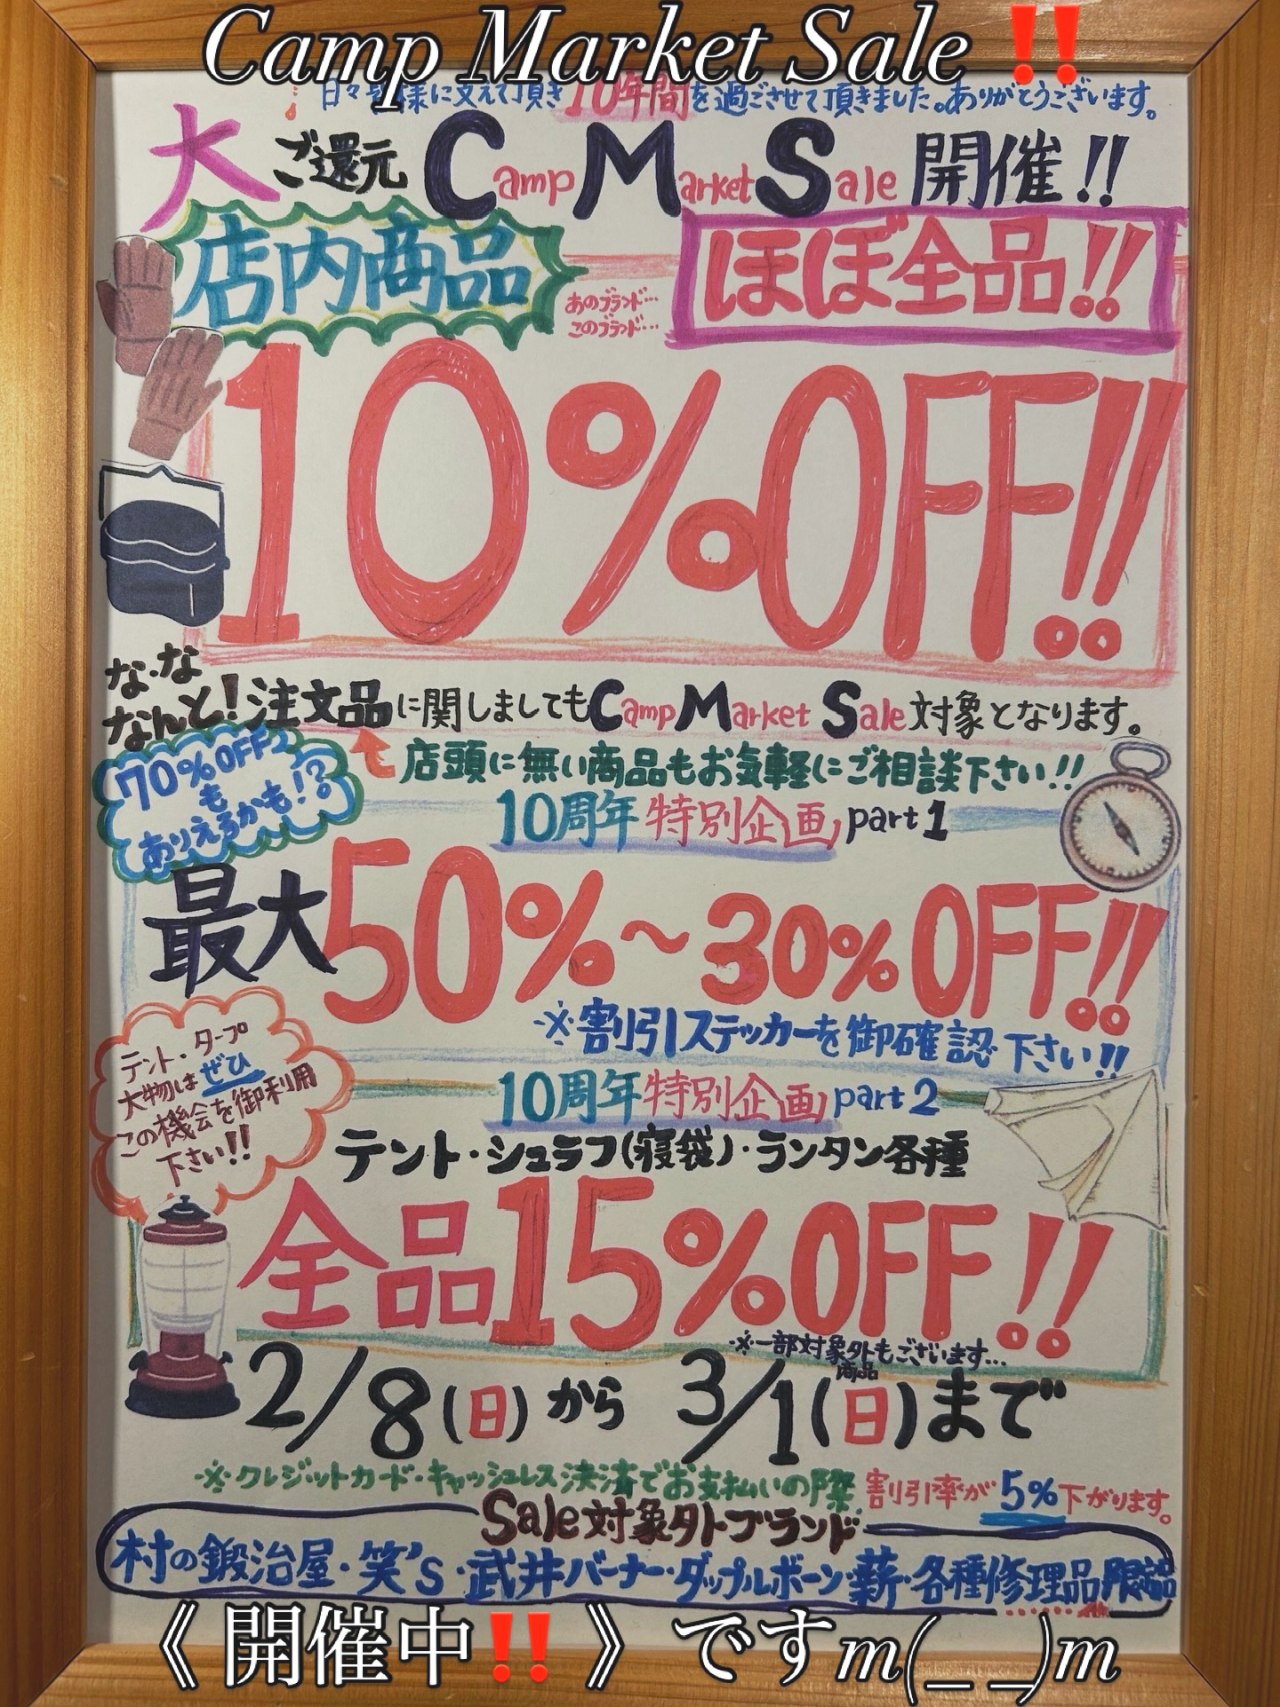 Camp Market Sale ‼️
日々皆様に支えて頂き10年間を過ごさせて頂きました。ありがとうございます。
大ご還元 Camp Market Sale 開催!!
店内商品
あのブランド…
このブランド…
ほぼ全品!!
10%OFF!!
な・な
なんと!注文品に関しましてもCamp Market Sale対象となります。
店頭に無い商品もお気軽にご相談下さい!!
70%OFF
も
ありえるかも!?
10周年特別企画part1
最大50%~30%OFF!!
※割引ステッカーを御確認下さい!!
テント・タープ
大物はぜひ
この機会を御利用
下さい!!
10周年特別企画part2
テント・シュラフ(寝袋)・ランタン各種
全品15%OFF!!
※一部対象外もございます…
商品
2/8(日)から3/1(日)まで
※クレジットカード・キャッシュレス決済でお支払いの際 割引率が5%下がります。
Sale対象外ブランド
村の鍛冶屋・笑's・武井バーナー・ダップルボーン・薪・各種修理品
《開催中‼️》ですm(_ _)m